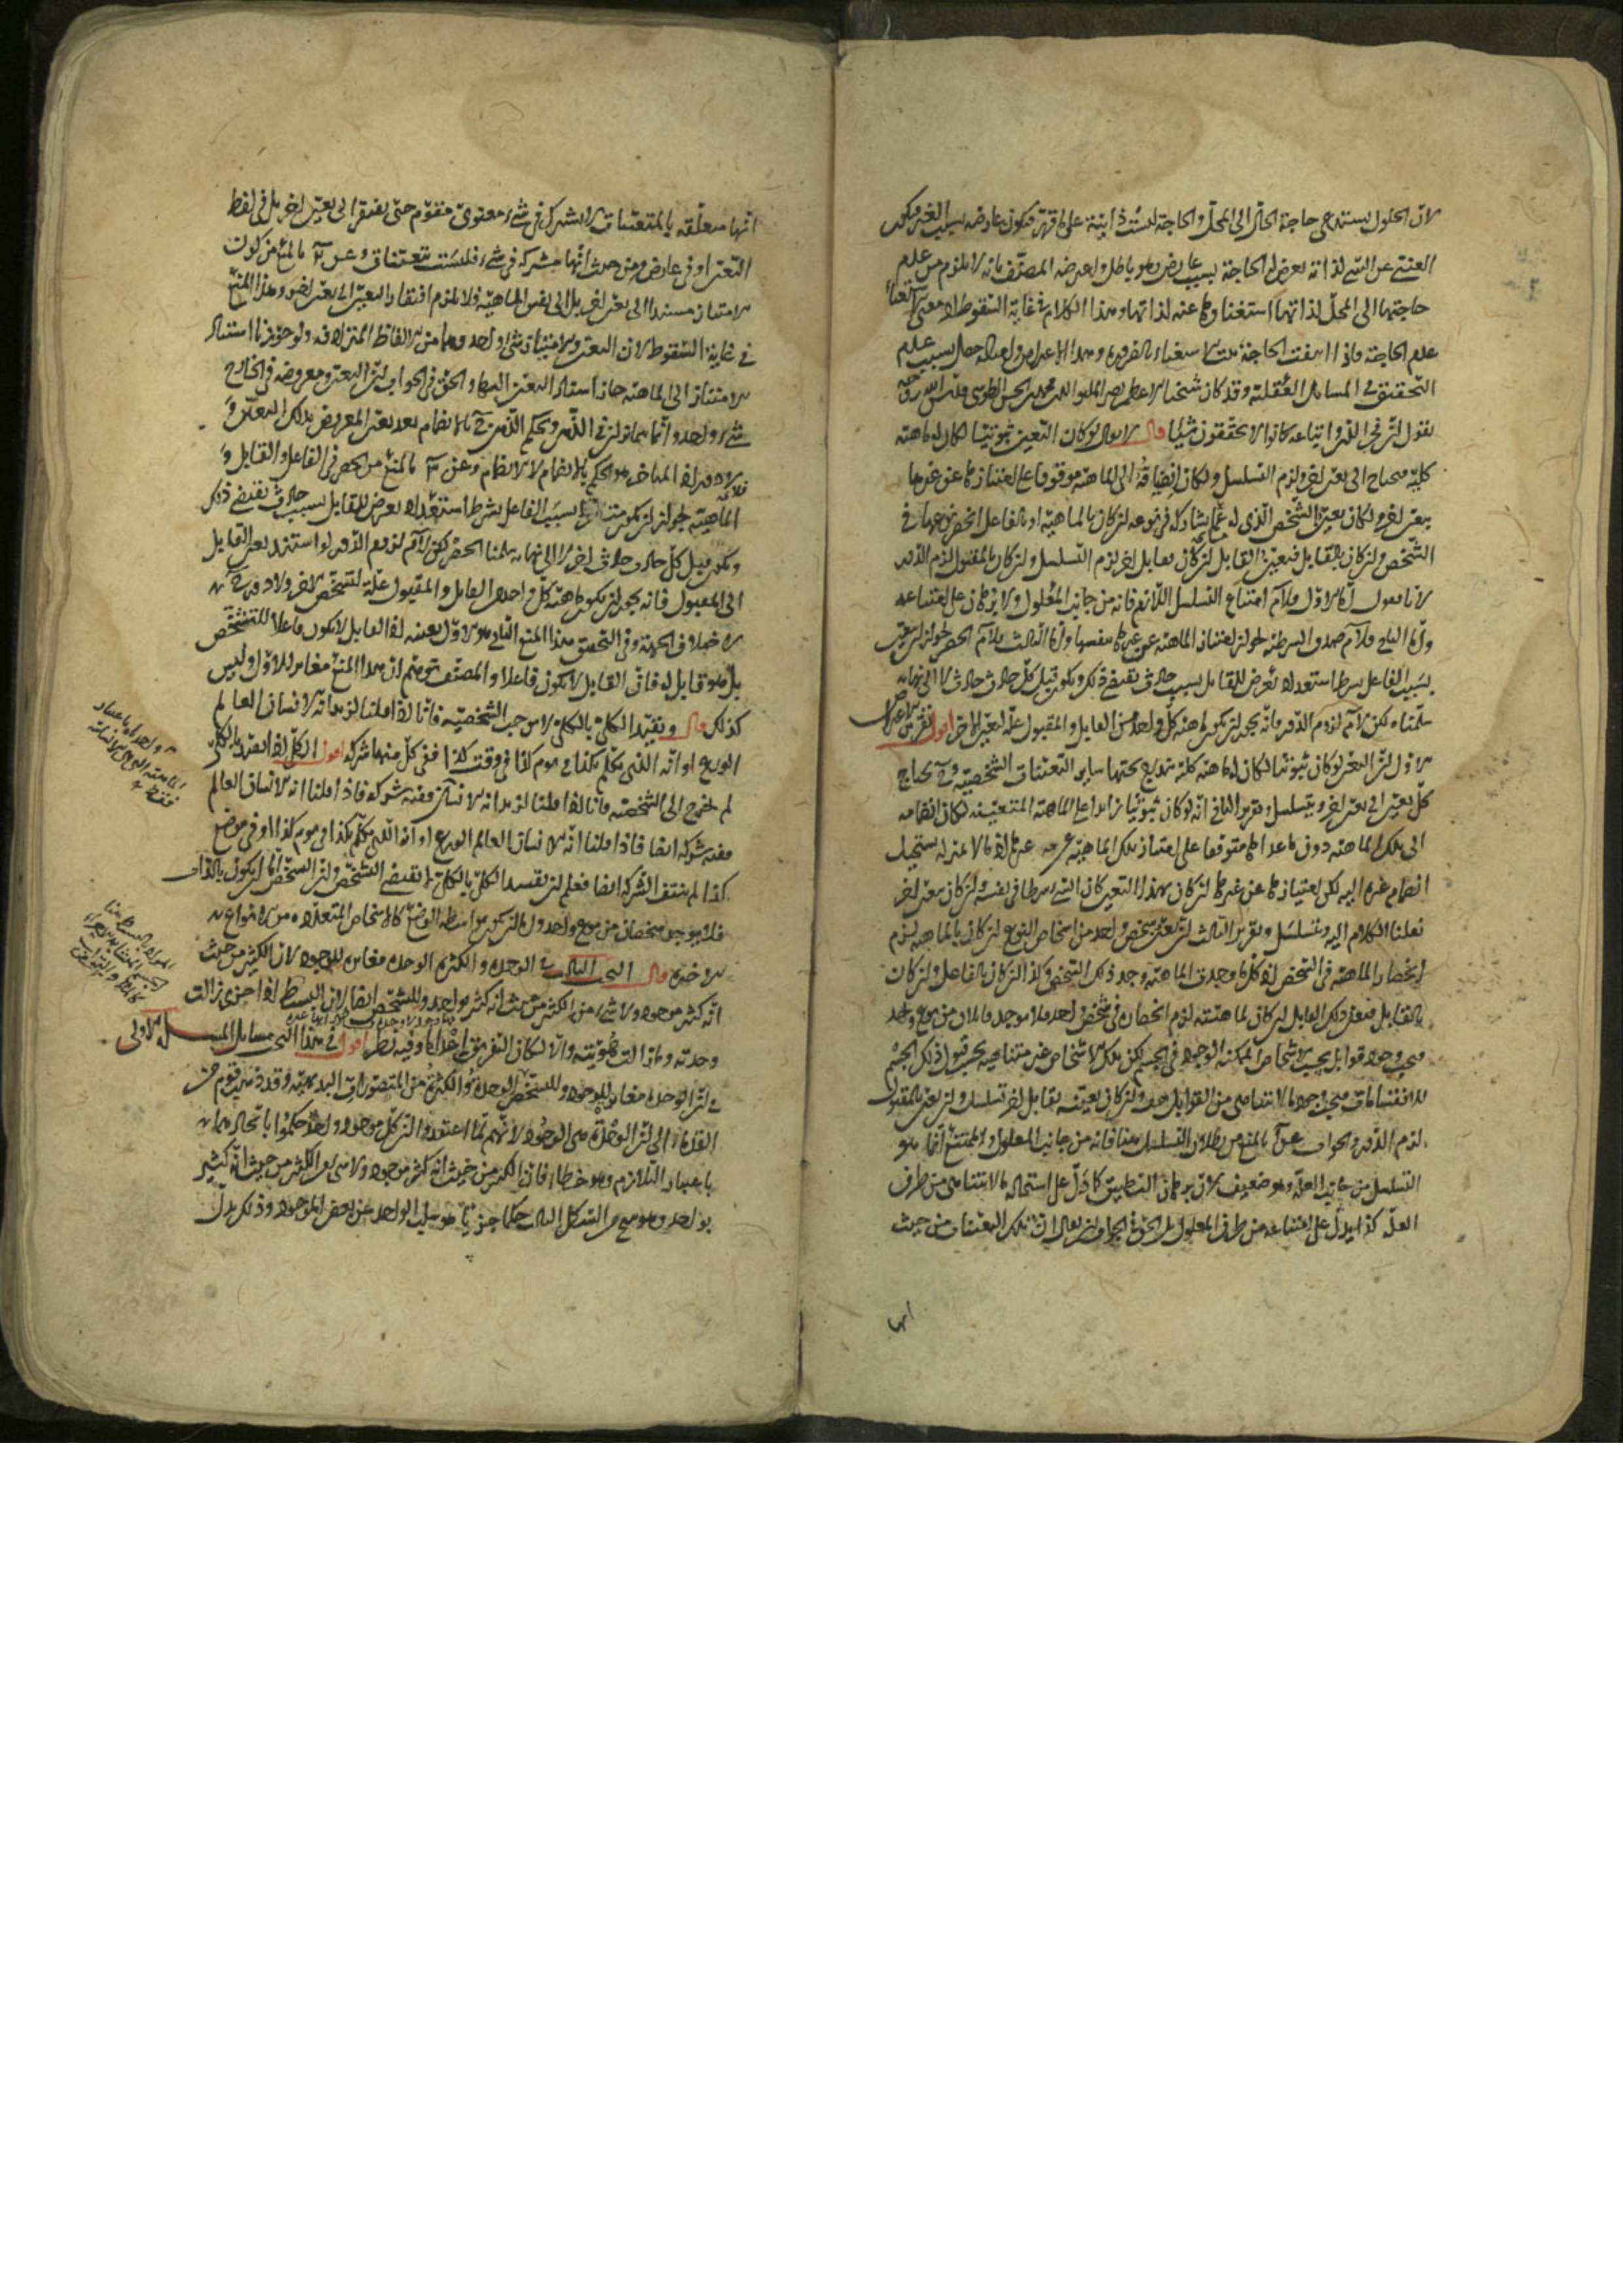 لان الحلول يستدعي حاجة الحال الى المحل والحاجة ليست ذاتية على ما قهر فيكون عارضة بسبب الغير فيكون
الغني عن الشي لذاته يعرض له الحاجة بسبب عارض وهو باطل واعترضه المصنف بانه لا يلزم من عدم
حاجتها الى المحل لذاتها استغناوها عنه لذاتها وهذا الكلام في غاية السقوط اذ لا معنى للغناء
عدم الحاجة فاذا انتفت الحاجة ثبت الاستغناء بالضرورة وهذا الاعتراض وامثاله حصل بسبب عدم
التحقيق في المسائل العقلية وقد كان شيخنا الاعظم نصير الملة والدين محمد بن الحسن الطوسي قدس الله روحه
يقول ان فخر الدين واتباعه كانوا لا يحققون شيئا قال لا يقال لو كان التعين ثبوتيا لكان له ماهية
كلية محتاج الى تعين اخر ولزم التسلسل ولكان انضيافه الى الماهية موقوفا على امتيازها عن غيرها
بتعين اخر ولكان تعين الشخص الذي له ما يشاركه في نوعه ان كان بالماهية او بالفاعل انحصر نوعها في
الشخص وان كان بالقابل فتعين القابل ان كان بقابل اخر لزم التسلسل وان كان بالمقبول لزم الدور
لانا نقول اما الاول فلا نم امتناع التسلسل اللازم فانه من جانب المعلول ولا برهان على امتناعه
واما الثاني فلا نم صدق الشرطية لجواز امتياز الماهية عن غيرها بنفسها واما الثالث فلا نم الحصر لجواز ان يتعين
بسبب الفاعل بشرط استعداد يعرض للقابل بسبب حادث يقتضي ذلك ويكون قبل كل حادث حادث لا الى نهاية
سلمناه لكن لا نم لزوم الدور فانه يجوز ان يكون ماهية كل واحد من القابل والمقبول علة لتعين الاخر اقول تقرير الاعتراض
الاول ان التعين لو كان ثبوتيا لكان له ماهية كلية يندرج تحتها ساير التعينات الشخصية وح يحتاج
كل تعين الى تعين اخر ويتسلسل وتقرير الثاني انه لو كان ثبوتيا زايدا على الماهية المتعينة لكان انضمامه
الى تلك الماهية دون ما عداها متوقفا على امتياز تلك الماهية عن غيرها اذ ما لا تميز له يستحيل
انضمام غيره اليه لكن امتيازها عن غيرها ان كان بهذا التعين كان الشي شرطا في نفسه وان كان بتعين اخر
نقلنا الكلام اليه ويتسلسل وتقرير الثالث ان تعين شخص واحد من اشخاص النوع ان كان بالماهية لزم
انحصار الماهية في الشخص اذ كلما وجدت الماهية وجد ذلك الشخص وكذا ان كان بالفاعل وان كان
بالقابل فتعين ذلك القابل ان كان لماهيته لزم انحصاره في شخص واحد فلا يوجد قابلان من نوع واحد
فيجب وجود قوابل بحسب الاشخاص الممكنة الوجود في الجسم لكن تلك الاشخاص غير متناهية بحسب قبول ذلك الجسم
للانقسامات فيجب وجود ما لا يتناهى من القوابل هف وان كان تعينه بقابل اخر تسلسل وان تعين بالمقبول
لزم الدور والجواب عن آ بالمنع من بطلان التسلسل هنا فانه من جانب المعلول والممتنع انما هو
التسلسل من جانب العلة وهو ضعيف لان برهان التطبيق كما دل على استحالة ما لا يتناهى من طرف
العلة كذا يدل على امتناعه من طرف المعلول بل الحق في الجواب ان يقال ان تلك التعينات من حيث
انها
انها متعلقة بالمتعينات لا تشترك في شيء معنوي متقوم حتى يفتقر الى تعين اخر بل في لفظ
التعين او في عارض ومن حيث انها مشتركة في شيء فليست تعينات وعن ب بالمنع من كون
الامتياز مستندا الى تعين اخر بل الى نفس الماهية ولا يلزم افتقار التعين الى تعين اخر وهذا المنع
في غاية السقوط لان التعين والامتياز شيء واحد وهما من الالفاظ المترادفة ولو جوزنا استناد
الامتياز الى الماهية جاز استناد التعين اليها والحق في الجواب ان التعين ومعروضه في الخارج
شيء واحد وانما يمتازان في الذهن ويحكم الذهن ح بالانضمام بعد تعين المعروض بذلك التعين و
الماهية لجواز ان يكون متعينا بسبب الفاعل بشرط استعداد يعرض للقابل بسبب حادث يقتضي ذلك
ويكون قبل كل حادث حادث اخر لا الى نهاية سلمنا الحصر لكن لا نم لزوم الدور لو استند تعين القابل
الى المقبول فانه يجوز ان يكون ماهية كل واحد من القابل والمقبول علة لتشخص الاخر ولا دور ح
لاختلاف الجهة وفي التحقيق هذا المنع الثاني هو الاول بعينه اذ القابل لا يكون فاعلا للتشخص
بل هو قابل له فان القابل لا يكون فاعلا والمصنف توهم ان هذا المنع مغاير للاول وليس
كذلك قال وتقييد الكلي بالكلي لا يوجب الشخصية فانا اذا قلنا لزيد انه الانسان العالم
الورع او انه الذي تكلم بكذا في يوم كذا في وقت كذا ففي كل منها شركة اقول الكلي اذا تقيد بالكلي
لم يخرج الى الشخصية فانا اذا قلنا لزيد انه الانسان ففيه شركة فاذا قلنا انه الانسان العالم
ففيه شركة ايضا فاذا قلنا انه الانسان العالم الورع او انه الذي تكلم بكذا في يوم كذا او في موضع
كذا لم ينتف الشركة ايضا فعلم ان تقييد الكلي بالكلي لا يقتضي التشخص
قال البحث الثالث في الوحدة والكثرة الوحدة مغايرة للوجود لان الكثير من حيث
انه كثير موجود ولا شيء من الكثير من حيث انه كثير بواحد وللتشخص ايضا لان البسيط اذا جزئ زالت
وحدته وما زالت هويته والا لكان التفريق اعداما وفيه نظر اقول في هذا البحث مسائل المسئلة الاولى
في ان الوحدة مغايرة للوجود وللتشخص الوحدة والكثرة من المتصورات البديهية وقد ذهب قوم من
القدماء الى ان الوحدة هي الوجود لانهم لما اعتقدوا ان كل موجود واحد حكموا باتحادهما
باعتبار التلازم وهو خطاء فان الكثير من حيث انه كثير موجود ولا شيء من الكثير من حيث انه كثير
بواحد وهو ينتج من الشكل الثالث حكما جزئيا هو سلب الواحد عن بعض الموجود وذلك يدل